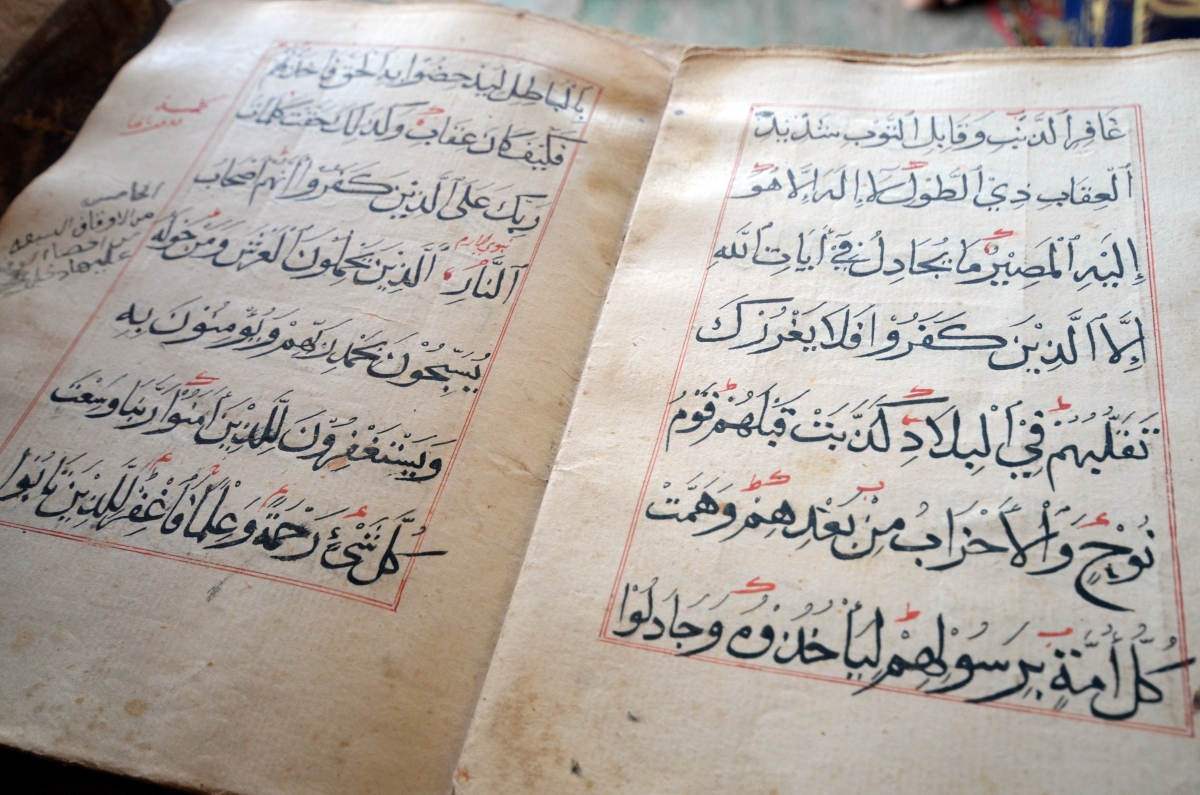 غَافِرِ ٱلذَّنۢبِ وَقَابِلِ ٱلتَّوْبِ شَدِيْدِ
ٱلْعِقَابِ ذِيْ ٱلطَّوْلِ لَا إِلٰهَ إِلَّا هُوَ
إِلَيْهِ ٱلْمَصِيْرُ مَا يُجَادِلُ فِيْ أٰيَاتِ ٱللّٰهِ
إِلَّا ٱلَّذِيْنَ كَفَرُوْا فَلَا يَغْرُرْكَ
تَقَلُّبُهُمْ فِيْ ٱلْبِلَادِ كَذَّبَتْ قَبْلَهُمْ قَوْمُ
نُوْحٍ وَٱلْأَحْزَابُ مِنْ بَعْدِهِمْ وَهَمَّتْ
كُلُّ أُمَّةٍ بِرَسُوْلِهِمْ لِيَأْخُذُوْهُ وَجَادَلُوْا
بِالْبَاطِلِ لِيُدْحِضُوْا بِهِ ٱلْحَقَّ فَأَخَذْتُهُمْ
فَكَيْفَ كَانَ عِقَابِ وَكَذٰلِكَ حَقَّتْ كَلِمَاتُ
رَبِّكَ عَلَى ٱلَّذِيْنَ كَفَرُوْا أَنَّهُمْ أَصْحَابُ
ٱلنَّارِ ٱلَّذِيْنَ يَحْمِلُوْنَ ٱلْعَرْشَ وَمَنْ حَوْلَهُ
يُسَبِّحُوْنَ بِحَمْدِ رَبِّهِمْ وَيُؤْمِنُوْنَ بِهِ
وَيَسْتَغْفِرُوْنَ لِلَّذِيْنَ أٰمَنُوْا رَبَّنَا وَسِعْتَ
كُلَّ شَيْءٍ رَحْمَةً وَعِلْمًا فَٱغْفِرْ لِلَّذِيْنَ تَابُوْا
الخامس
من الاوقاف السبعه